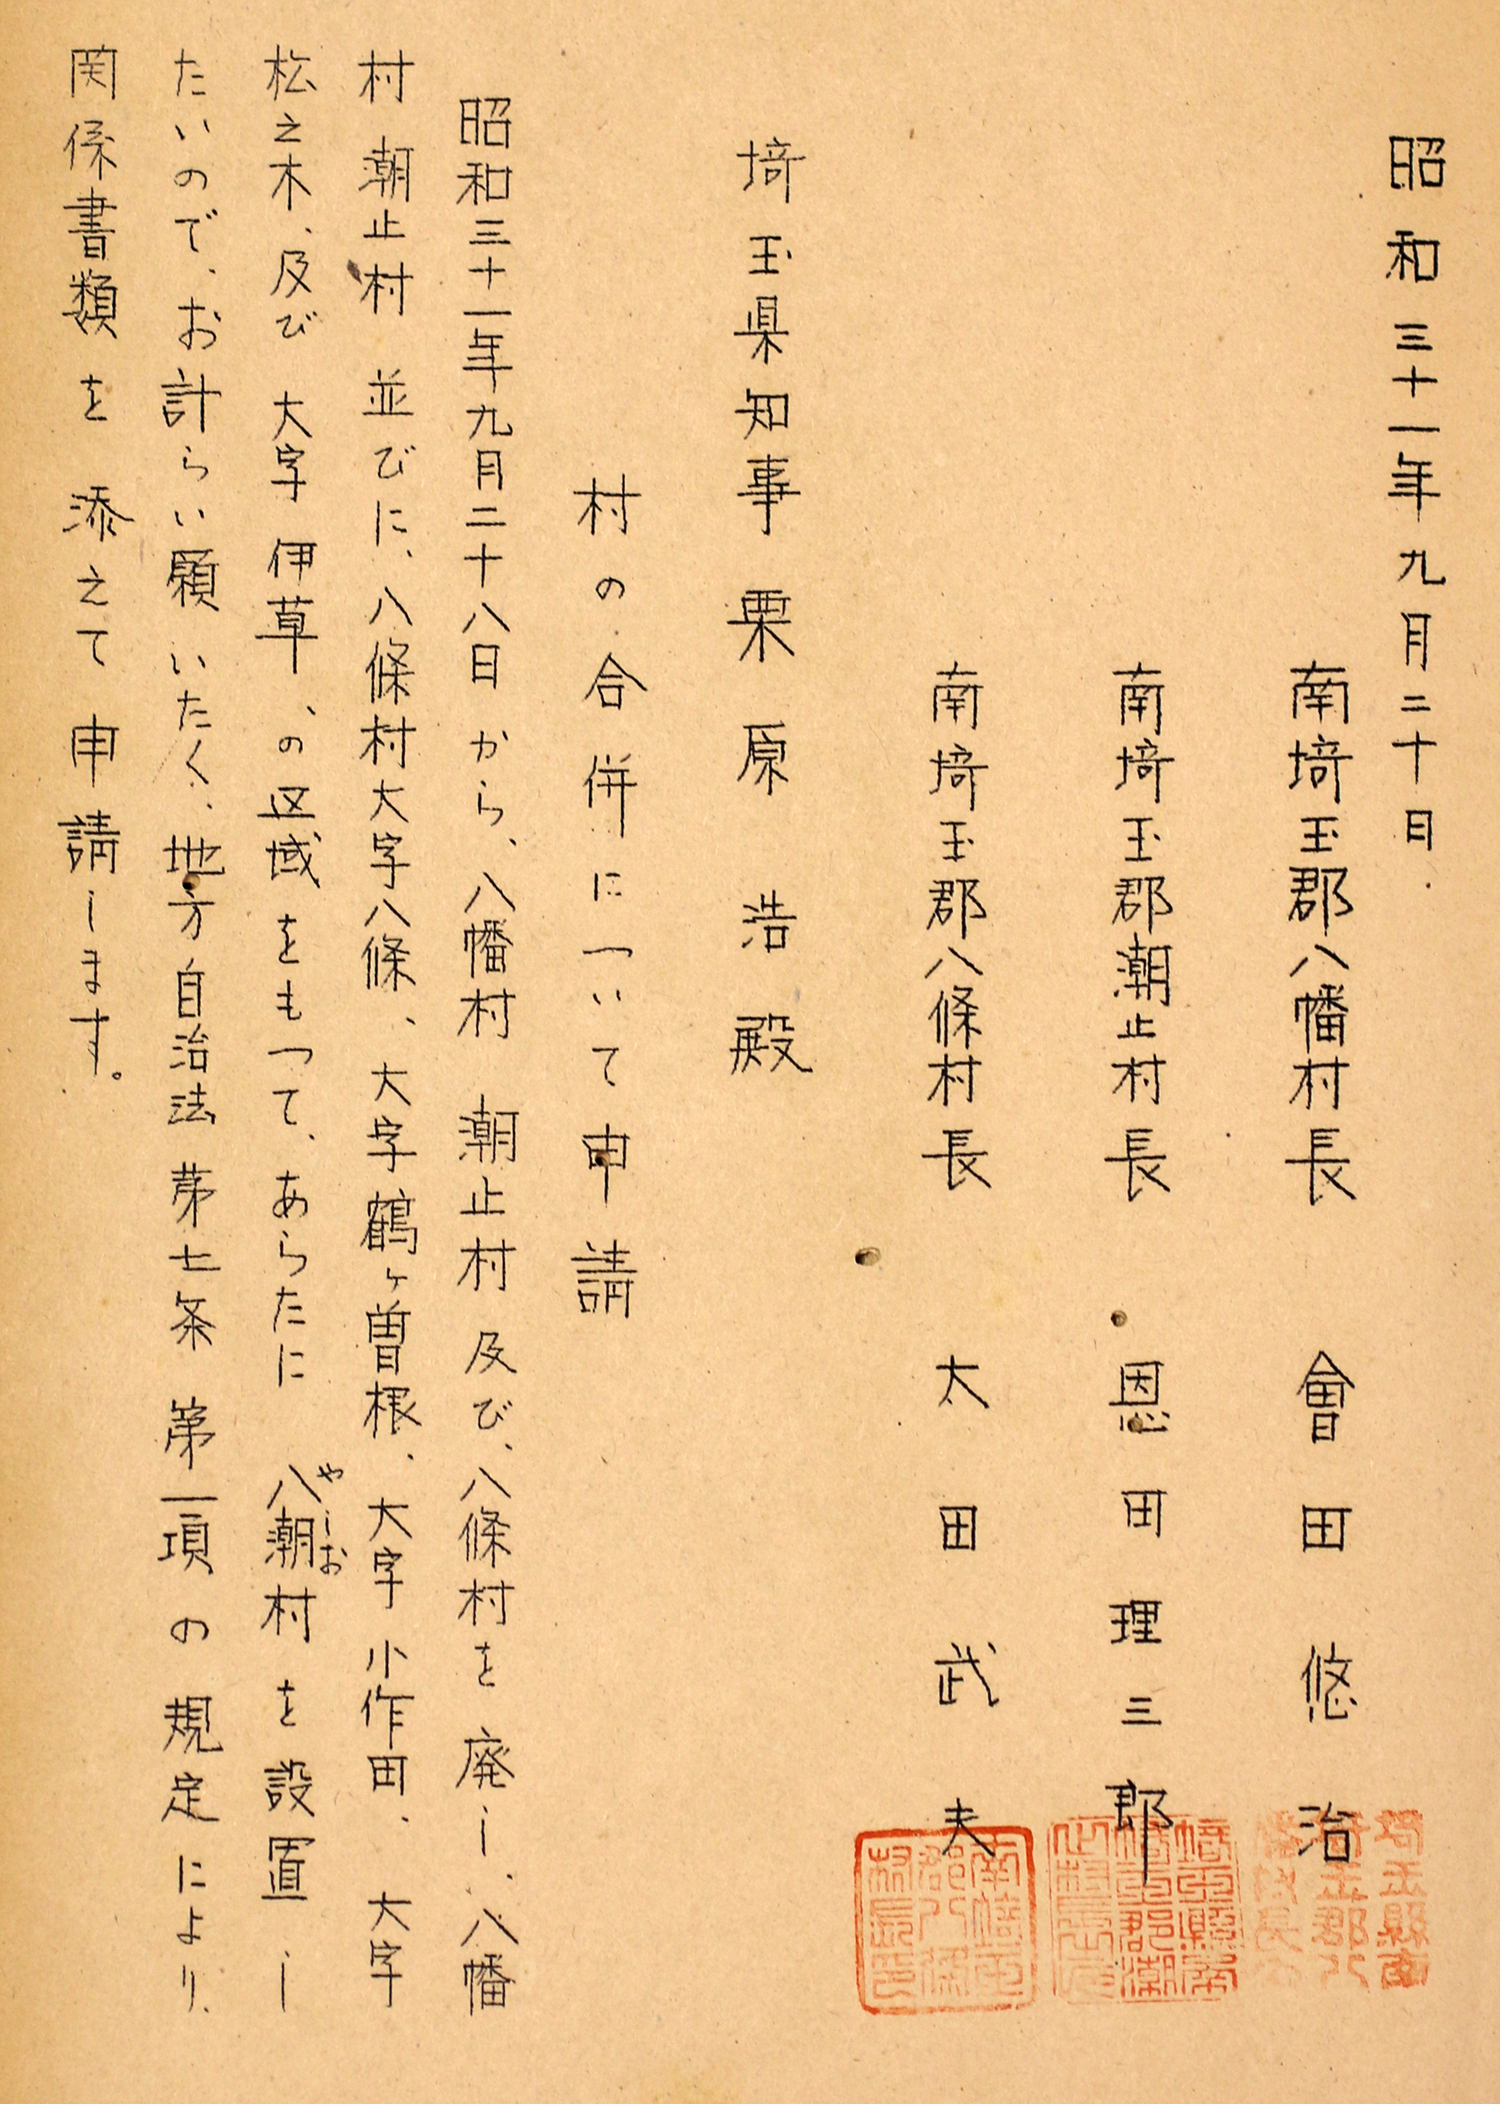 昭和三十一年九月二十日
南埼玉郡八幡村長 會田悠治
南埼玉郡潮止村長 恩田理三郎
南埼玉郡八條村長 太田武夫
埼玉県知事 栗原浩殿
村の合併について申請
昭和三十一年九月二十八日から、八幡村 潮止村 及び、八條村を廃し、八幡
村 潮止村 並びに、八條村大字八條、大字鶴ヶ曽根、大字小作田、大字
松之木、及び 大字伊草、の区域をもつて、あらたに 八潮村を設置し
やしお
たいので、お計らい願いたく、地方自治法第七条第一項の規定により、
関係書類を添えて申請します。
南埼玉郡八條村長